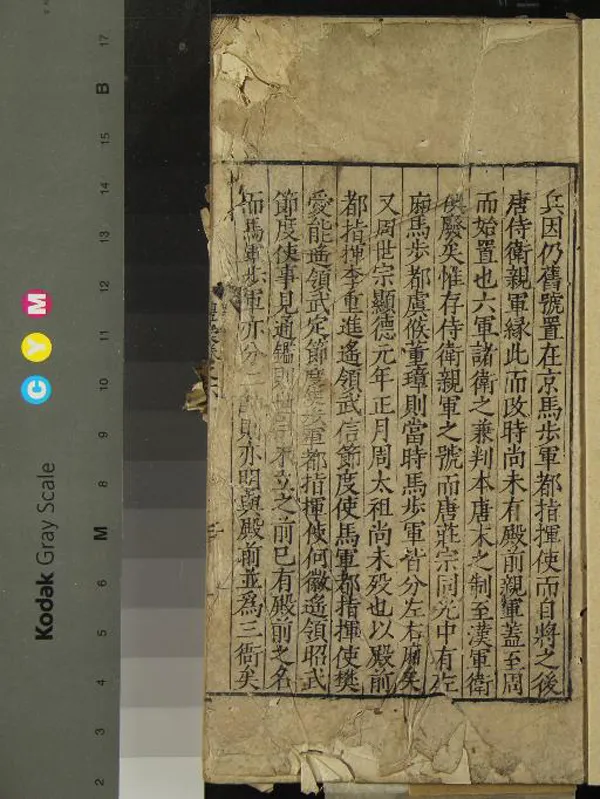 兵因仍舊號置在京馬步軍都指揮使而自將之後
唐侍衛親軍緣此而改時尚未有殿前親軍蓋至周
而始置也六軍諸衛之兼判本唐末之制至漢軍衛
俱廢矣惟存侍衛親軍之號而唐莊宗同光中有左
廂馬步都虞候董璋則當時馬步軍皆分左右廂矣
又周世宗顯德元年正月周太祖尚未歿也以殿前
都指揮李重進遙領武信節度使馬軍都指揮使樊
愛能遙領武定節度使步軍都指揮使何徽遙領昭武
節度使事見通鑑則世宗未立之前已有殿前之名
而馬軍步軍亦分二 則亦明與殿前並為三衙矣
Kodak Gray Scale
C Y M
17
B
15
14
13
12
11
10
9
8
M
6
5
4
3
2